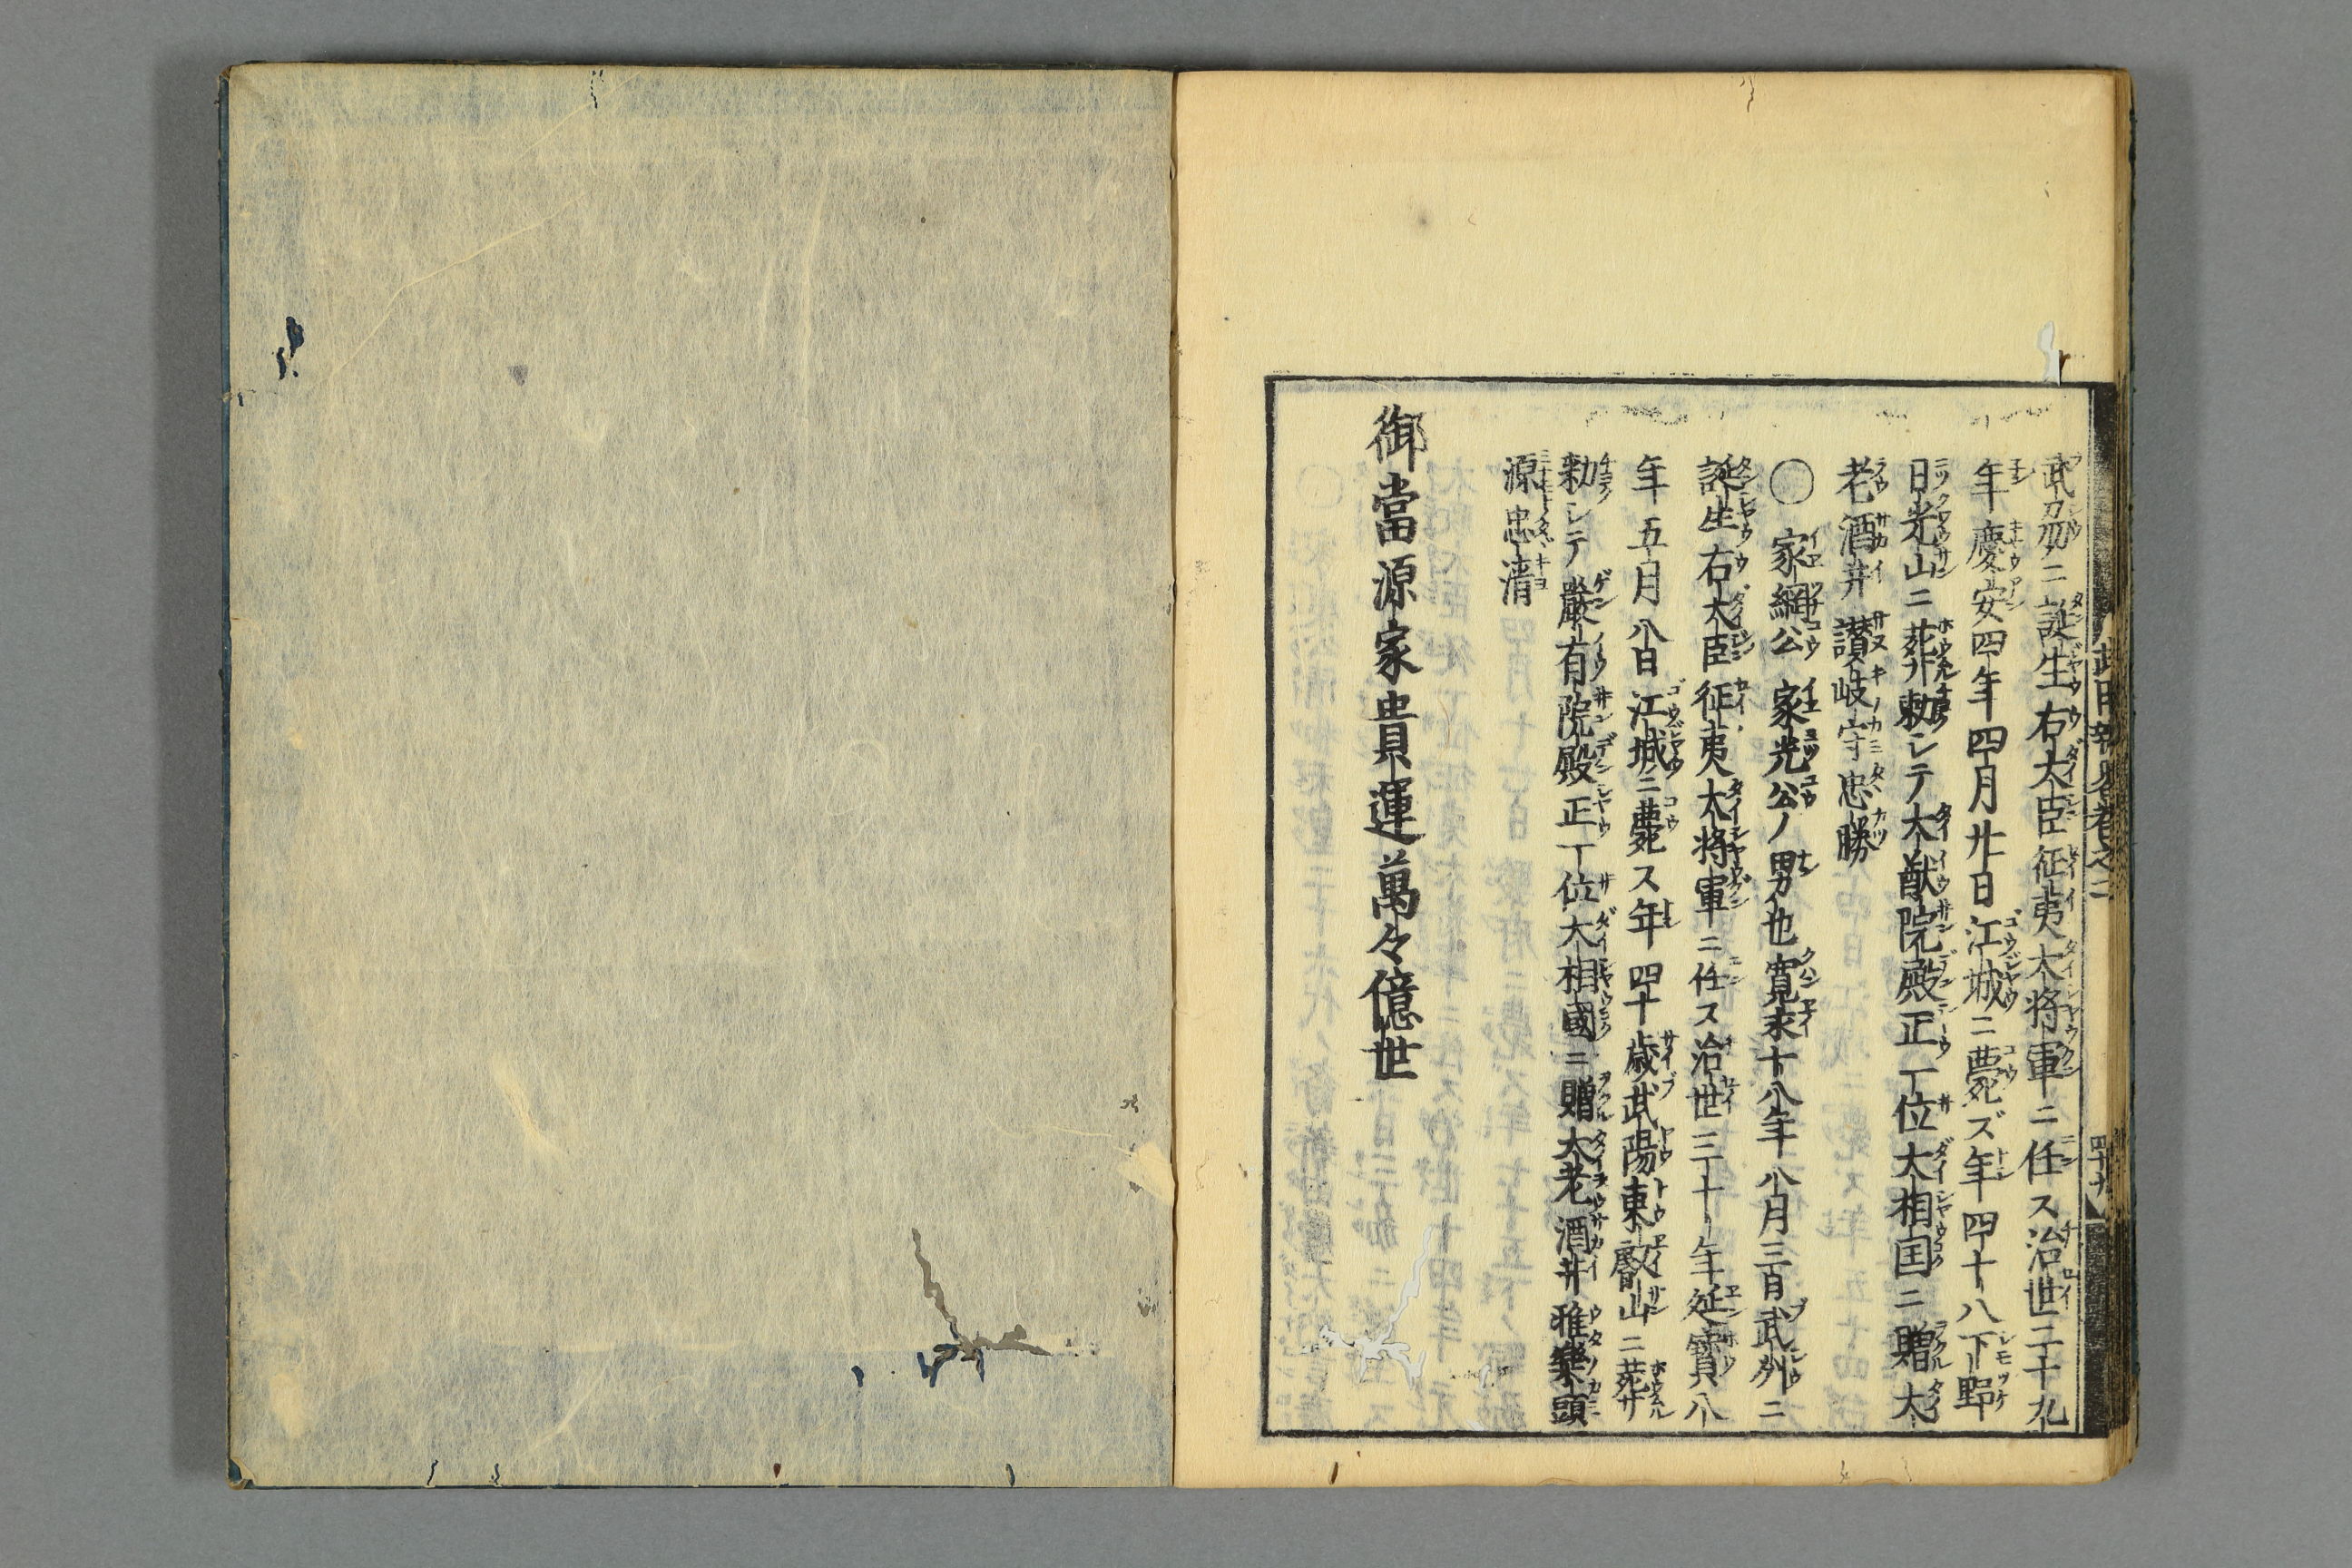 武刕ニ誕生右大臣征夷大将軍ニ任ス治世二十九
年慶安四年四月廿日江城ニ薨ズ年四十八下野
日光山ニ葬勅シテ大猷院殿正一位大相国ニ贈大
老酒井讃岐守忠勝
〇家綱公家光公ノ男也寛永十八年八月三日武州ニ
誕生右大臣征夷大将軍ニ任ス治世三十一年延寶八
年五月八日江城ニ薨ス年四十歳武陽東叡山ニ葬サ
勅シテ嚴有院殿正一位大相國ニ贈大老酒井雅樂頭
源忠清
御當源家貴運萬々億世